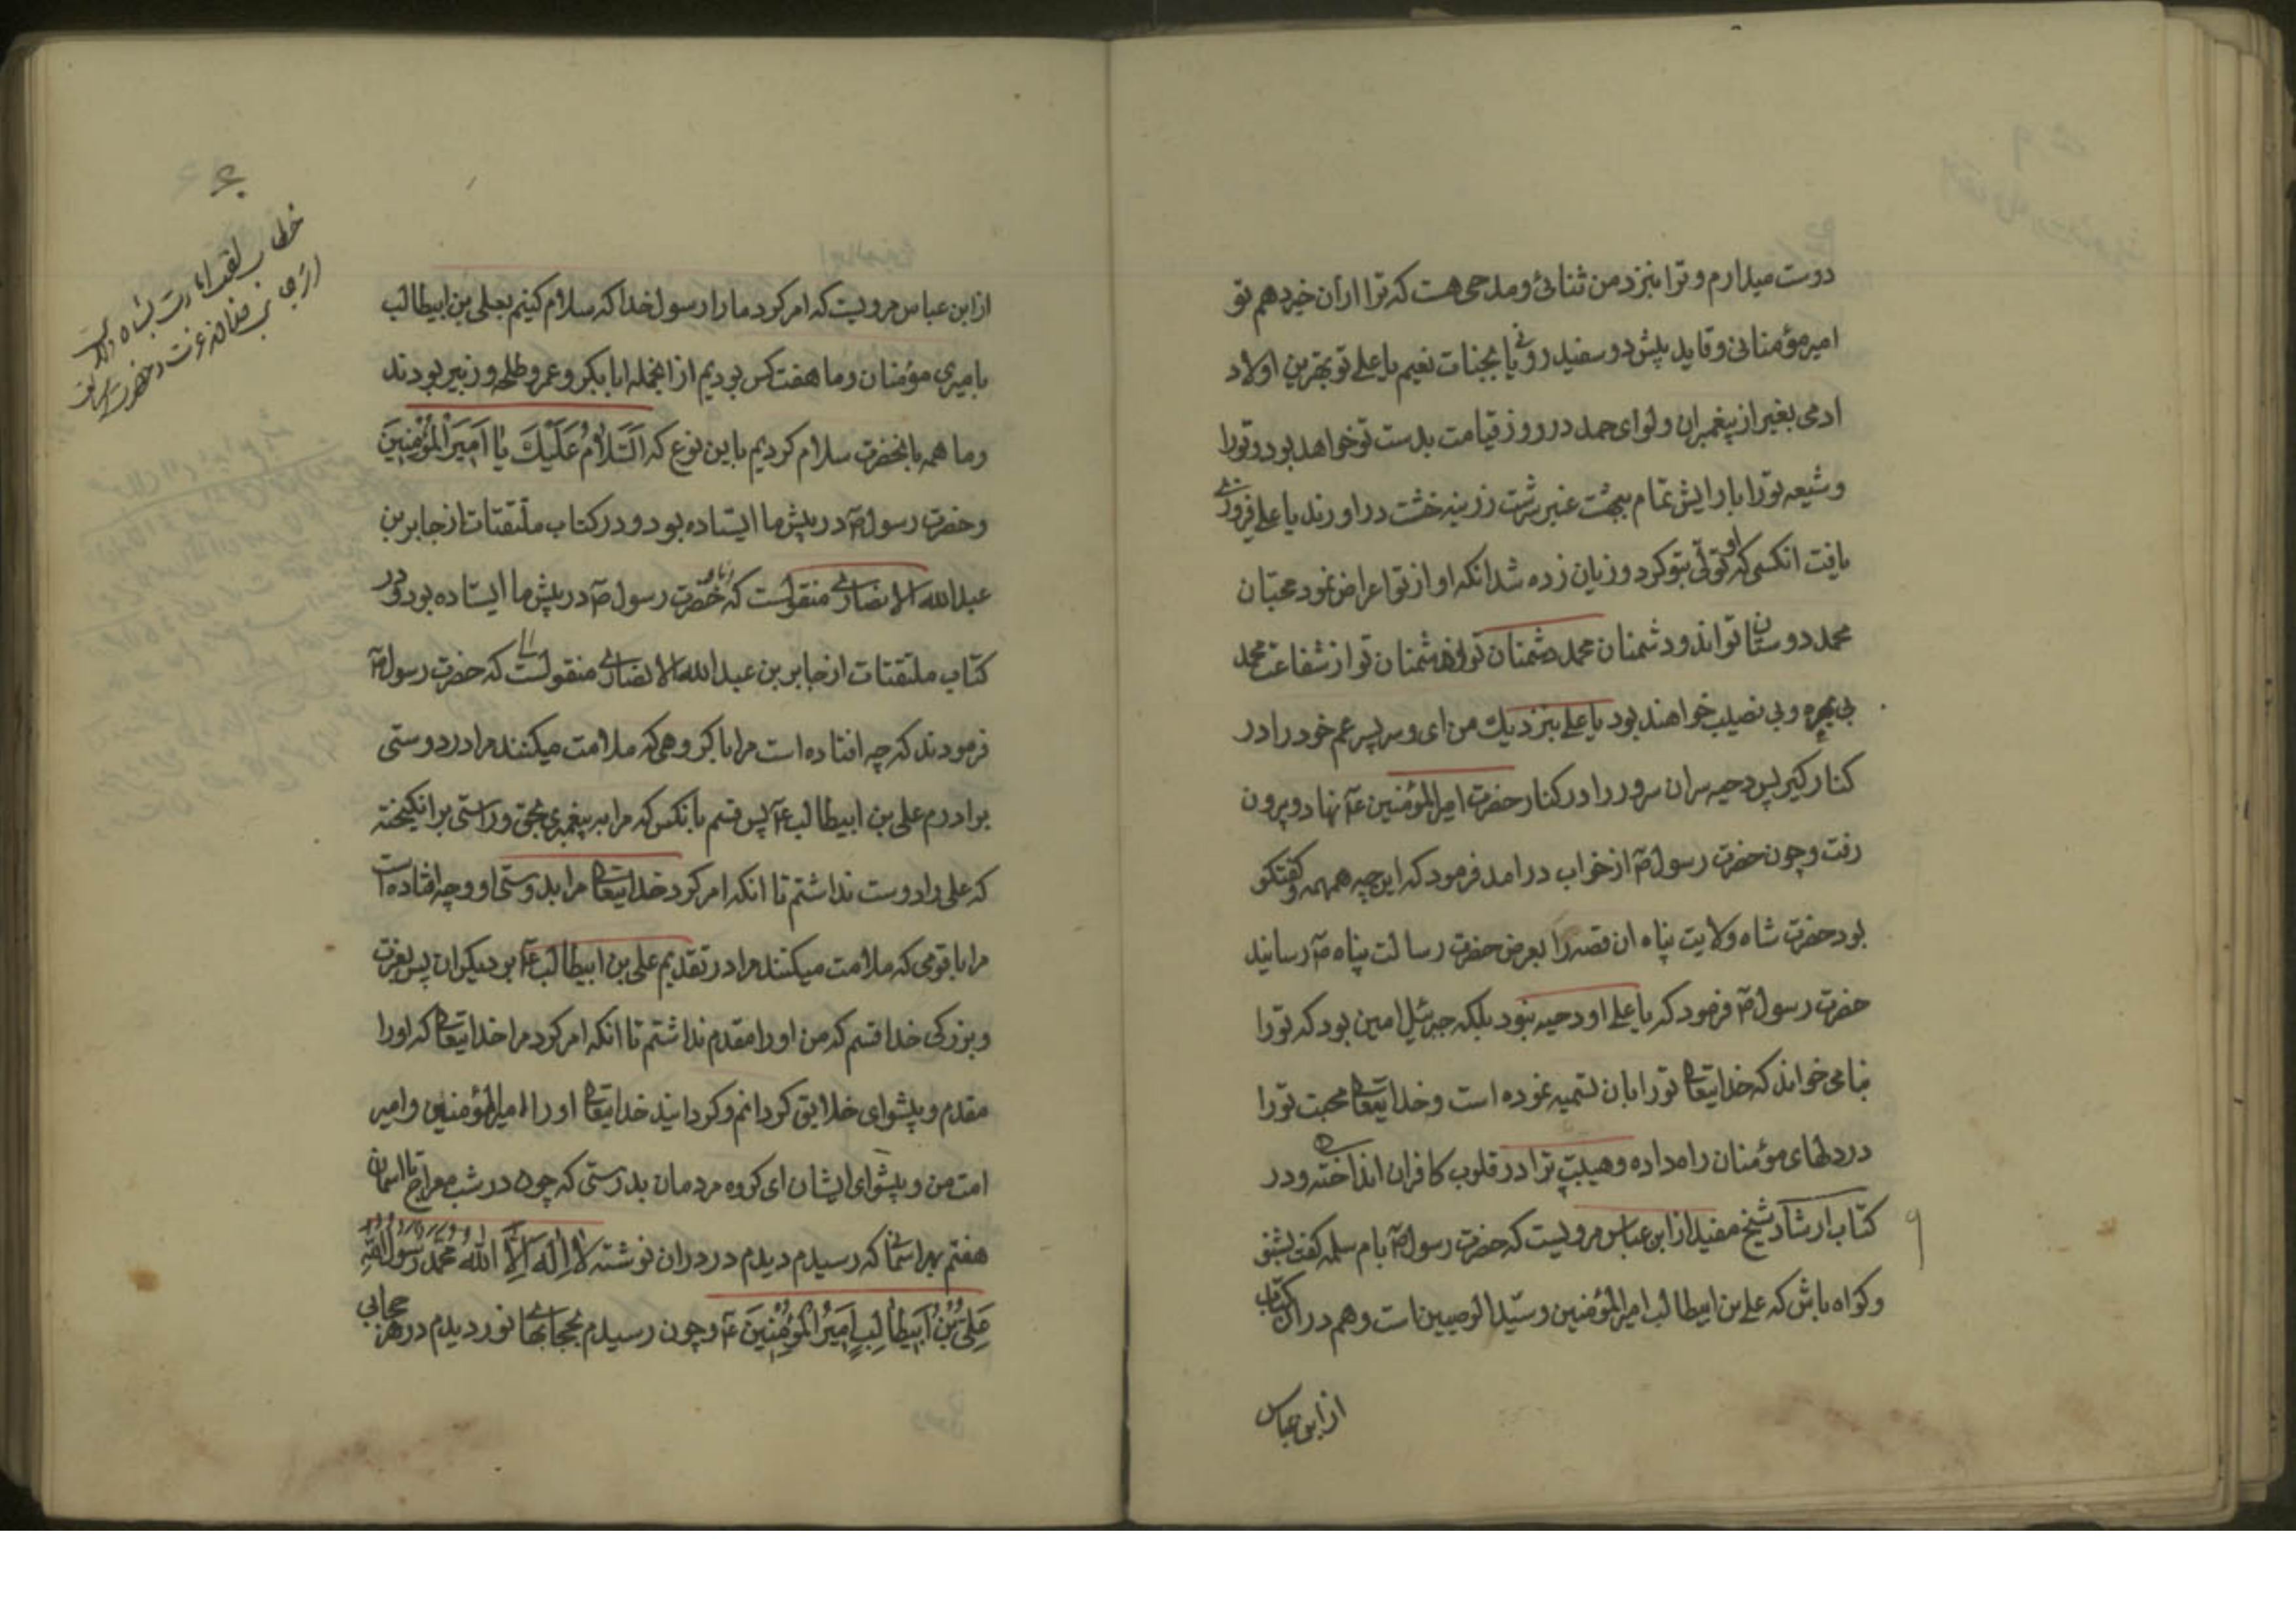 دوست میدارم و ترا بنزد من ثنائی و مدحی هست که ترا ازان خبر دهم تو
امیر مؤمنانی و قاید پیش دو سفید رویانی بجنات نعیم یا علی تو بهترین اولاد
ادمی بغیر از پیغمبران و لوای حمد در روز قیامت بدست تو خواهد بود و تورا
و شیعه تورا بارایش تمام ببهشت عنبر سرشت زرینه خشت دراورند یا علی فیروزی
یافت انکسی که او تولی بتو کرد و زیان زده شد انکه او از تو اعراض نمود محبّان
محمد دوستان تواند و دشمنان محمد دشمنان تواند دشمنان تو از شفاعت محمد
بی بهره و بی نصیب خواهند بود یا علی بنزدیك من ای و سر پسر عم خود را در
کنار گیر پس دحیه سران سرور را در کنار حضرت امیر المؤمنین عآ نهاد و بیرون
رفت و چون حضرت رسول صآ از خواب درامد فرمود که این چه همهمه و گفتگو
بود حضرت شاه ولایت پناه ان قصه را بعرض حضرت رسالت پناه صآ رسانید
حضرت رسول صآ فرمود که یا علی او دحیه نبود بلکه جبرئیل امین بود که تورا
بنامی خواند که خدایتعالی تورا بان تسمیه نموده است و خدایتعالی محبت تورا
در دلهای مؤمنان راه داده و هیبت ترا در قلوب کافران انداخته و در
کتاب ارشاد شیخ مفید از ابن عباس مرویست که حضرت رسول صآ بام سلمه گفت بشنو
و گواه باش که علی بن ابیطالب امیر المؤمنین و سیّد الوصیین است و هم در ان کتاب
از ابن عباس
۹
۶
خطاب
از ابن عباس مرویست که امر کرد مارا رسول خدا که سلام کنیم بعلی بن ابیطالب
بامیری مؤمنان و ما هفت کس بودیم از انجمله ابابکر و عمر و طلحه و زبیر بودند
و ما همه بانحضرت سلام کردیم باین نوع که اَلسَّلامُ عَلَیْكَ یا اَمیرَ الْمُؤْمِنینَ
و حضرت رسول صآ در پیش ما ایستاده بود و در کتاب ملتقتات از جابر بن
عبد الله الانصاری منقولست که حضرت رسول صآ در پیش ما ایستاده بود و در
کتاب ملتقتات از جابر بن عبد الله الانصاری منقولست که حضرت رسول صآ
فرمودند که چه افتاده است مرا با گروهی که ملامت میکنند مرا در دوستی
برادرم علی بن ابیطالب عآ پس قسم بانکس که مرا به پیغمبری بحق و راستی برانگیخته
که علی را دوست نداشتم تا انکه امر کرد خدایتعالی مرا بدوستی او و چه افتاده است
مرا با قومی که ملامت میکنند مرا در تقدیم علی بن ابیطالب عآ بر دیگران پس بعزت
و بزرگی خدا قسم که من او را مقدم نداشتم تا انکه امر کرد مرا خدایتعالی که اورا
مقدم و پیشوای خلایق گردانم و گردانید خدایتعالی اورا امیر المؤمنین و امیر
امت من و پیشوای ایشان ای گروه مردمان بدرستی که چون در شب معراج با اسمان
هفتم بهر اسمانی که رسیدم دیدم در دران نوشته لا اِلهَ اِلَّا اللهُ محمد رسول الله
عَلِیُّ بْنُ اَبیطالِبٍ اَمیرُ الْمُؤْمِنینَ عآ و چون رسیدم بحجابهای نور دیدم در هر حجابی